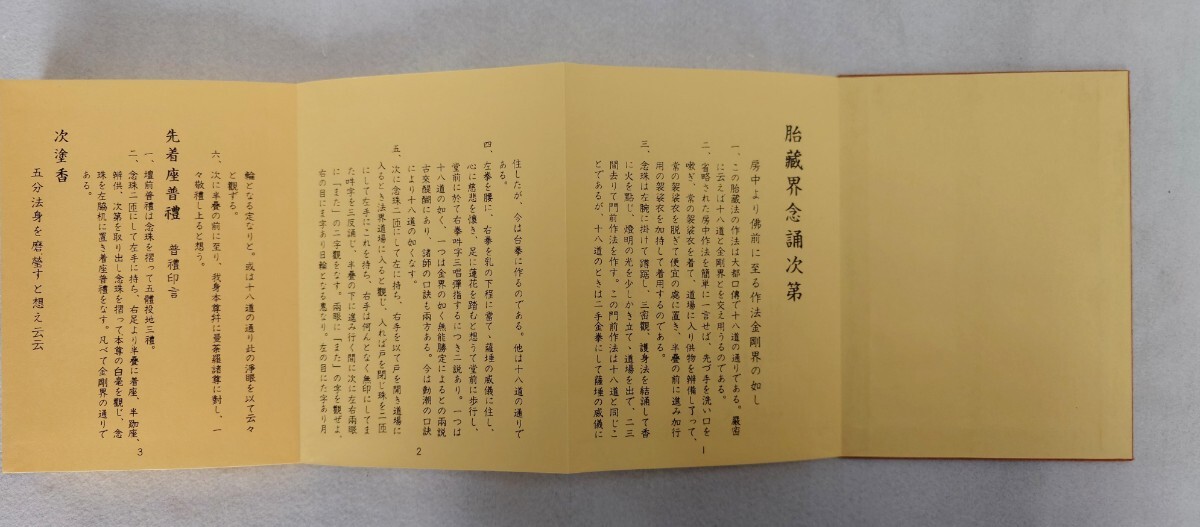 胎藏界念誦次第
房中より佛前に至る作法金剛界の如し
一、この胎藏法の作法は大都口傳で十八道の通りである。嚴密
に云えば十八道と金剛界とを交え用うるのである。
二、省略された房中作法を簡単に一言せば、先づ手を洗い口を
嗽ぎ、常の袈裟衣を着て、道場に入り供物を辨備し了って、
常の袈裟衣を脱ぎて便宜の處に置き、半疊の前に進み加行
用の袈裟衣を加持して着用するのである。
三、念珠は左腕に掛けて蹲踞し、三密觀、護身法を結誦して香
に火を點じ、燈明の光を少しかき立て、道場を出で、二三
間去りて門前作法を作す。この門前作法は十八道と同じこ
とであるが、十八道のときは二手金拳にして薩埵の威儀に
1
住したが、今は台拳に作るのである。他は十八道の通りで
四、左拳を腰に、右拳を乳の下程に當て、薩埵の威儀に住し、
心に慈悲を懐き、足に蓮花を踏むと想うて堂前に歩行し、
堂前に於て右拳吽字三唱彈指するにつき二説あり。一つは
十八道の如く、一つは金界の如く無能勝定によるとの兩説
古來醍醐にあり、諸師の口訣も兩方ある。今は動潮の口訣
により十八道の如くなす。
五、次に念珠二匝にして左に持ち、右手を以て戸を開き道場に
入るとき法界道場に入ると觀じ、入れば戸を閉じ珠を二匝
にして左手にこれを持ち、右手は何んとなく無印にしてま
た吽字を三反誦じ、半疊の下に進み行く間に次に左右兩眼
に「また」の二字觀をなす。兩眼に「また」の字を觀ぜよ、
右の目にま字あり日輪となる惠なり。左の目にた字あり月
2
輪となる定なりと。或は十八道の通り此の淨眼を以て云々
と觀ずる。
六、次に半疊の前に至り、我身本尊幷に曼荼羅諸尊に對し、一
々敬禮し上ると想う。
先着座普禮 普禮印言
一、壇前普禮は念珠を摺って五體投地三禮。
二、念珠二匝にして左手に持ち、右足より半疊に着座、半跏座、
辨供、次第を取り出し念珠を摺って本尊の白毫を觀じ、念
珠を左脇机に置き着座普禮をなす。凡べて金剛界の通りで
ある。
次塗香
五分法身を磨瑩すと想え云云
3